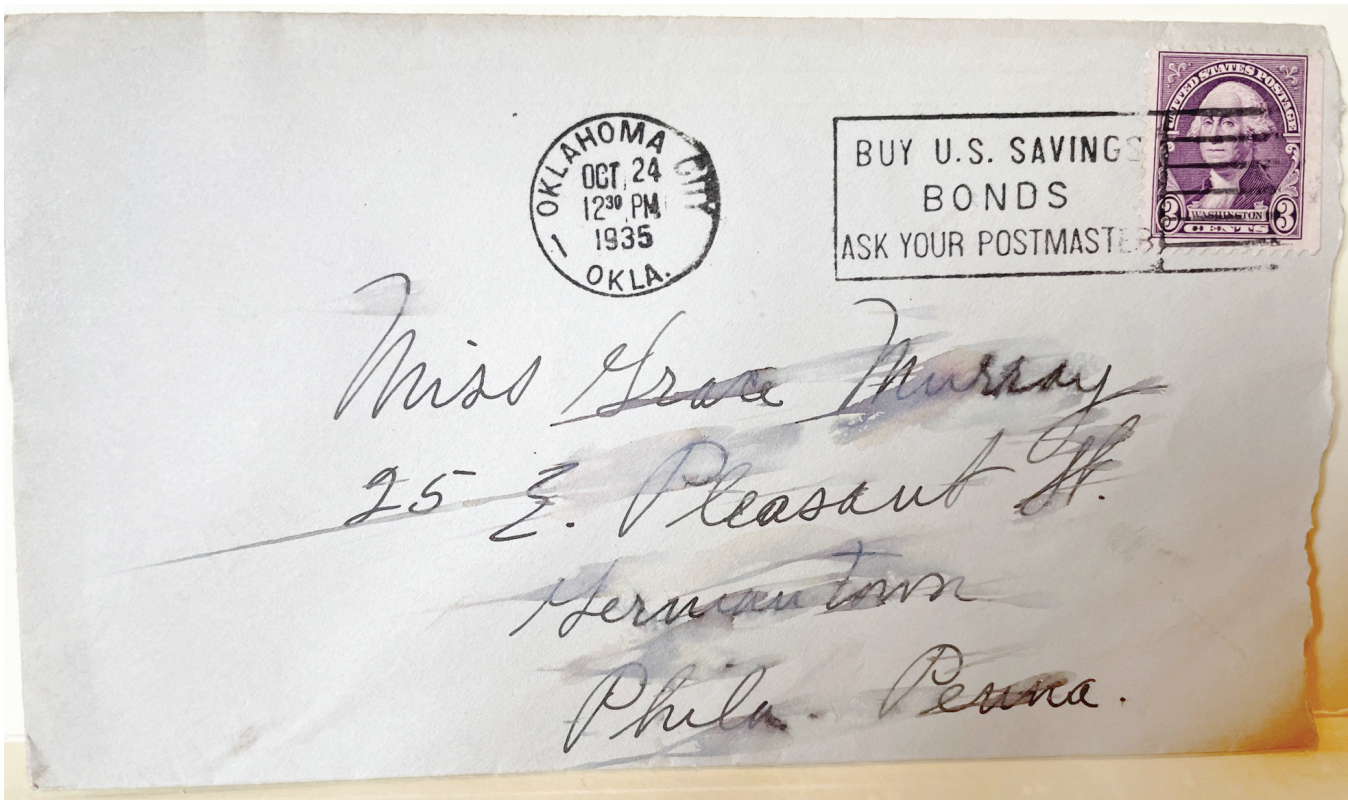 OKLAHOMA CITY
OCT 24
12³⁰ PM
1935
1
OKLA.
BUY U.S. SAVINGS
BONDS
ASK YOUR POSTMASTER
UNITED STATES POSTAGE
3 WASHINGTON 3
CENTS
Miss Grace Murray
25 E. Pleasant St.
Germantown
Phila. Penna.